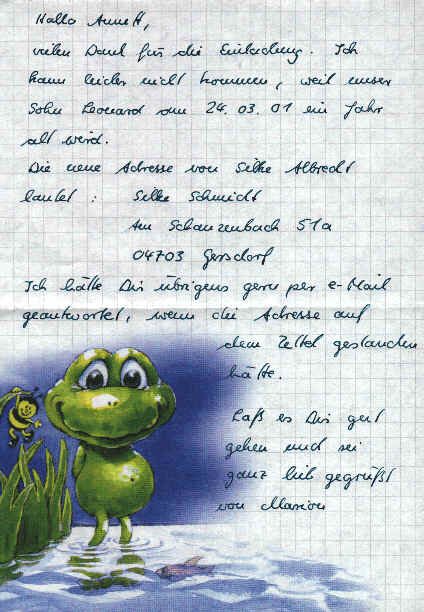 Hallo Annett,
vielen Dank für die Einladung. Ich
kann leider nicht kommen, weil unser
Sohn Leonard am 24.03.01 ein Jahr
alt wird.
Die neue Adresse von Silke Albrecht
lautet : Silke Schmidt
Am Schanzenbach 51a
04703 Gersdorf
Ich hätte Dir übrigens gern per e-Mail
geantwortet, wenn die Adresse auf
dem Zettel gestanden
hätte.
Laß es Dir gut
gehen und sei
ganz lieb gegrüßt
von Marion